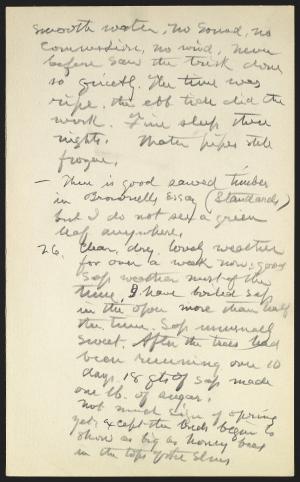 smooth water, no sound, no
commotion, no wind. Never
before saw the trick done
so quietly. The time was
ripe, the ebb tide did the
work. Fine sleep these
nights. Water pipes still
frozen.
— There is good sawed timber
in Brownells Essay (Standards)
but I do not see a green
leaf anywhere.
26. Clear, dry, lovely weather
for over a week now; good
Sap weather most of the
time, I have boiled sap
in the open more than half
the time. Sap unusually
sweet. After the trees had
been running over 10
days 18 qts of sap made
one lb. of sugar.
Not much sign of spring
yet, except the buds begin to
show as big as honey bees
in the tops of the Elms